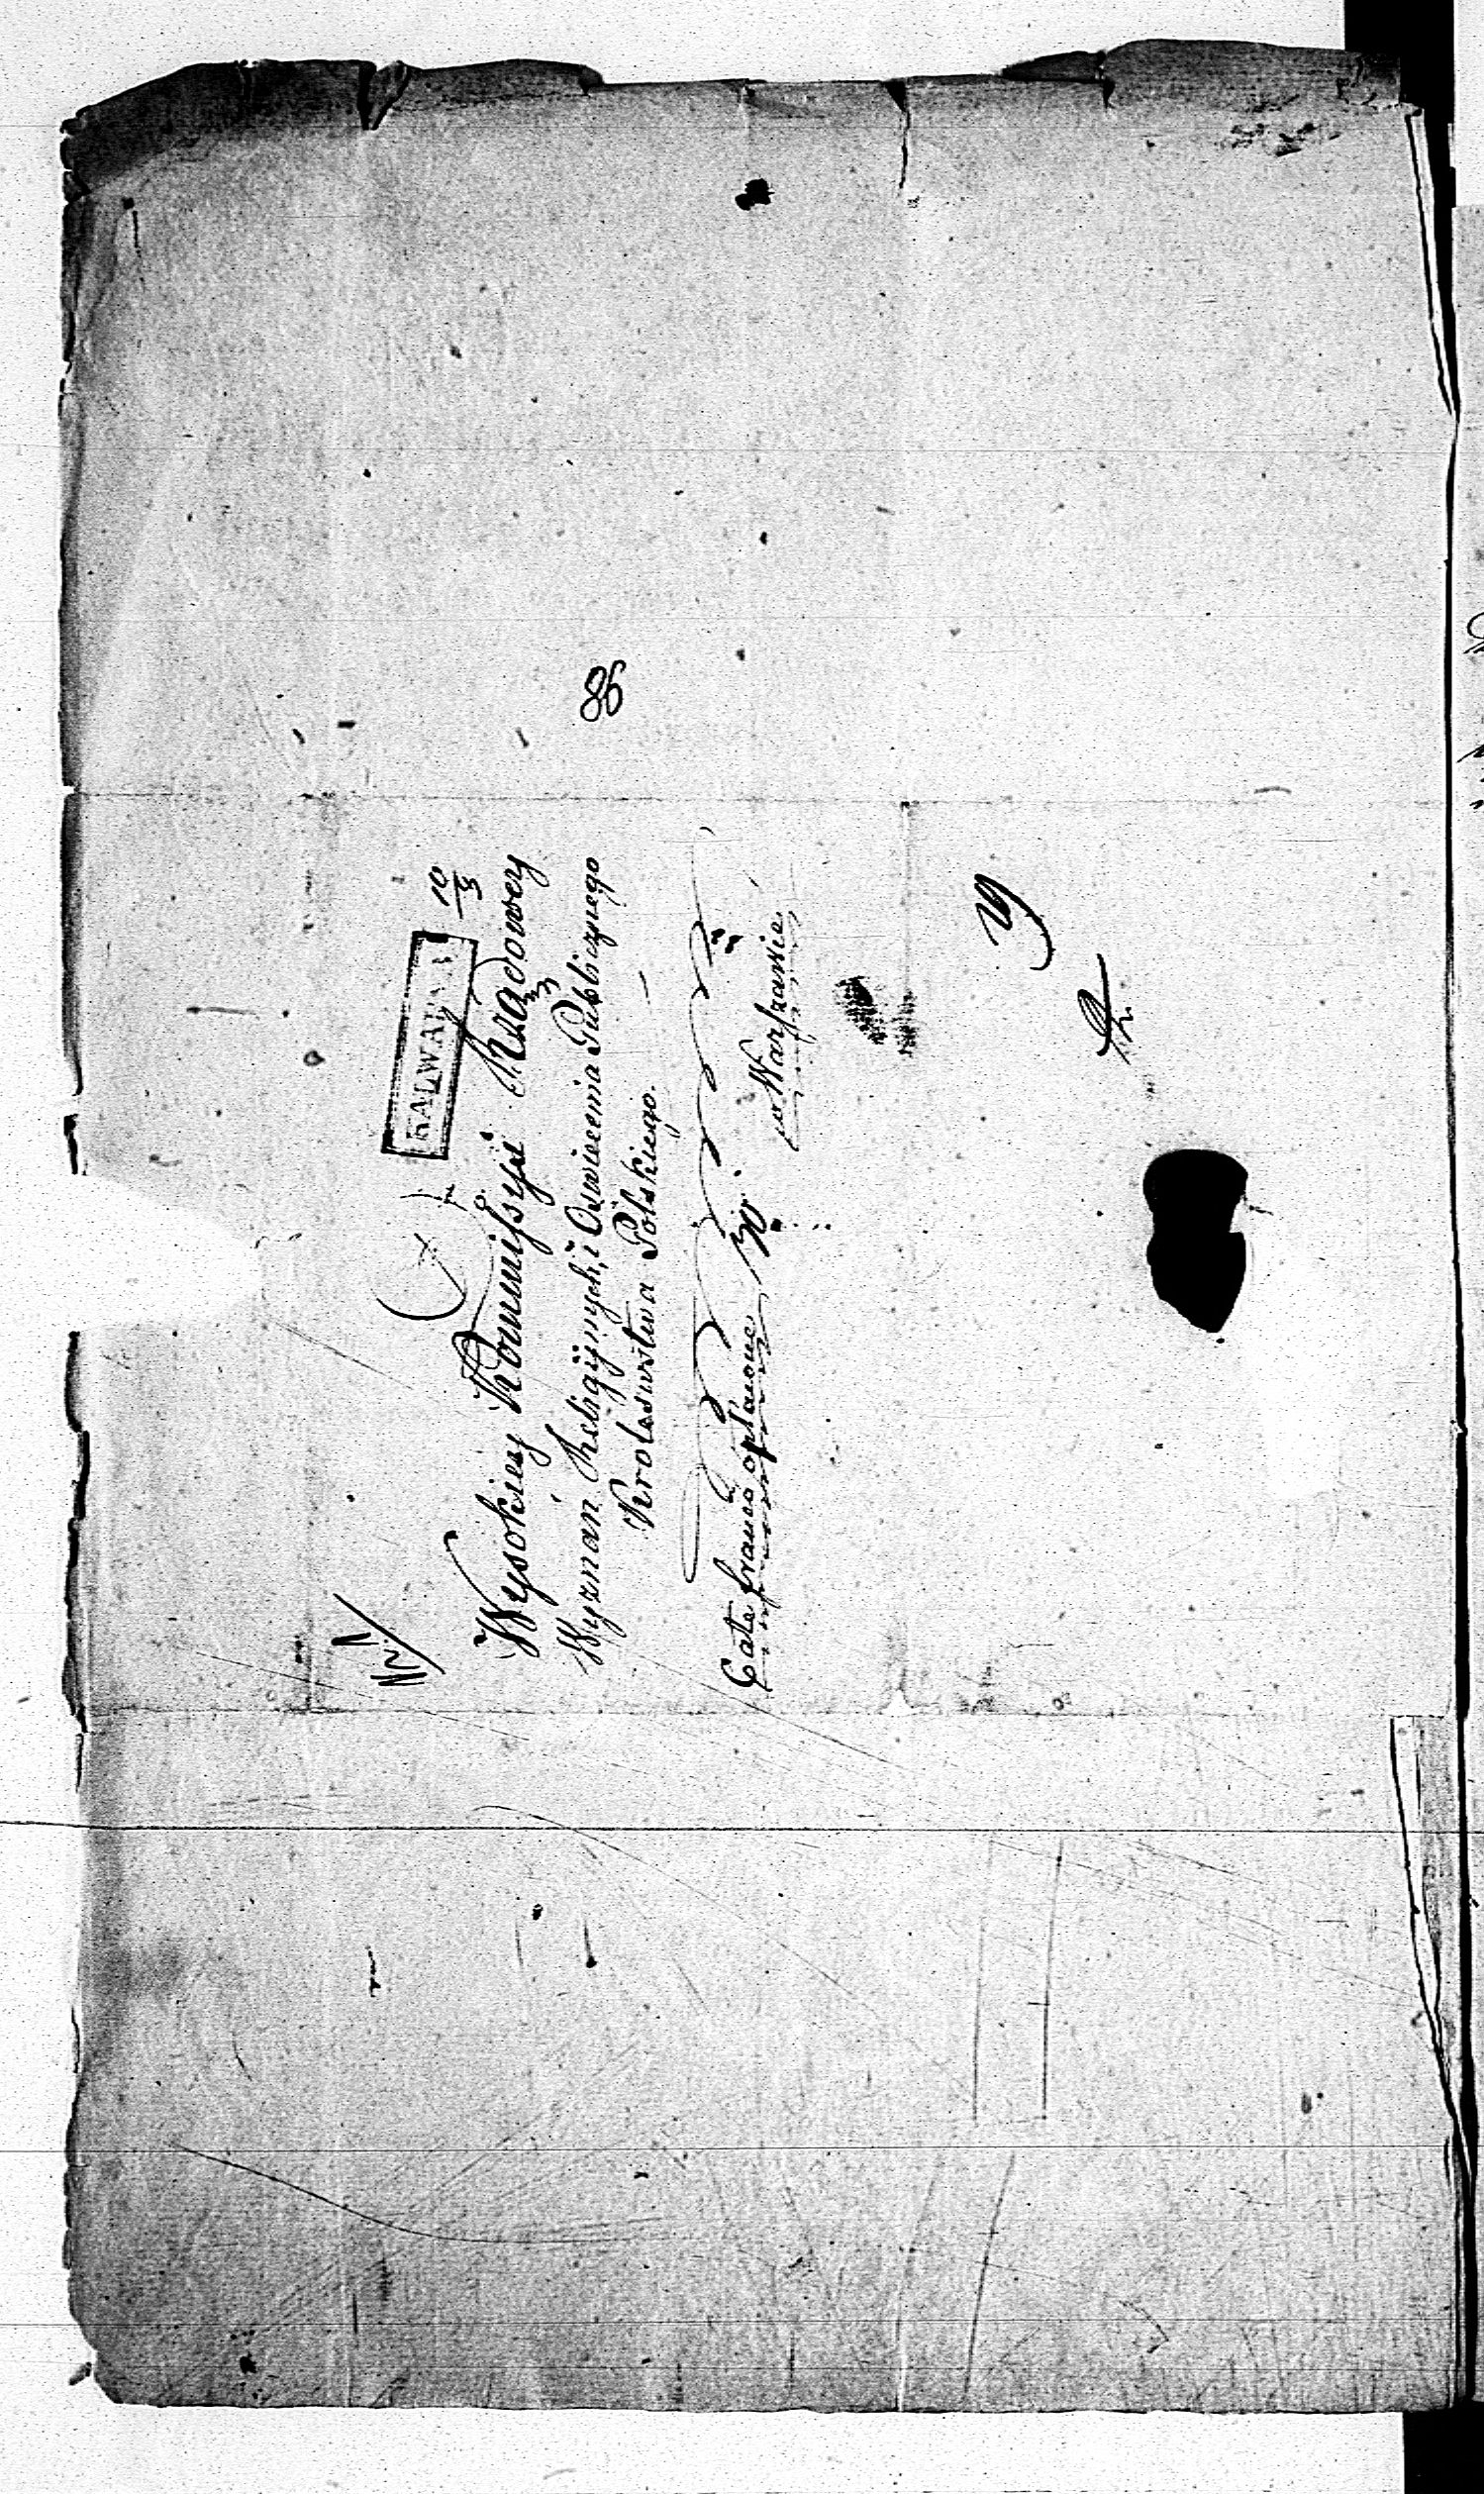 Nr 1
KALWARYA
10/3
Wysokiey Kommissyi Rządowey
Wyznań Religijnych, i Oświecenia Publicznego
Krolewstwa Polskiego.
Cate franco opłacone
w Warszawie
86